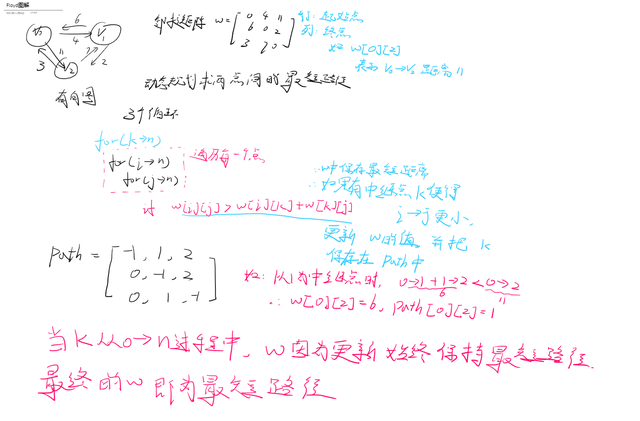 Floyd图解
V0
6
4
V1
11
3
V2
2
有向图
邻接矩阵 w = [ 0 4 11
6 0 2
3 7 0 ]
行: 起始点
列: 终点
如 w[0][2]
表示 V0→V2 距离 11
动态规划求两点间的最短路径
3个循环
for(k→n)
for(i→n)
for(j→n)
遍历每一个点
if w[i][j] > w[i][k] + w[k][j]
∴ w中保存最短距离
∴ 如果有中继点 k 使得
i→j 更小,
更新 w 的值, 并把 k
保存在 path 中
Path = [ -1, 1, 2
0, -1, 2
0, 1, -1 ]
如: 以1为中继点时, 0→1 + 1→2 < 0→2
6 11
∴ w[0][2]=6, path[0][2]=1
当K从0→n过程中, w因为更新始终保持最短路径.
最终的w即为最短路径